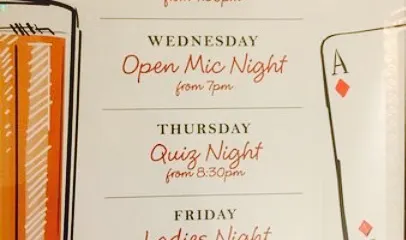 WEDNESDAY
Open Mic Night
from 7pm
THURSDAY
Quiz Night
from 8:30pm
FRIDAY
Ladies Night
A